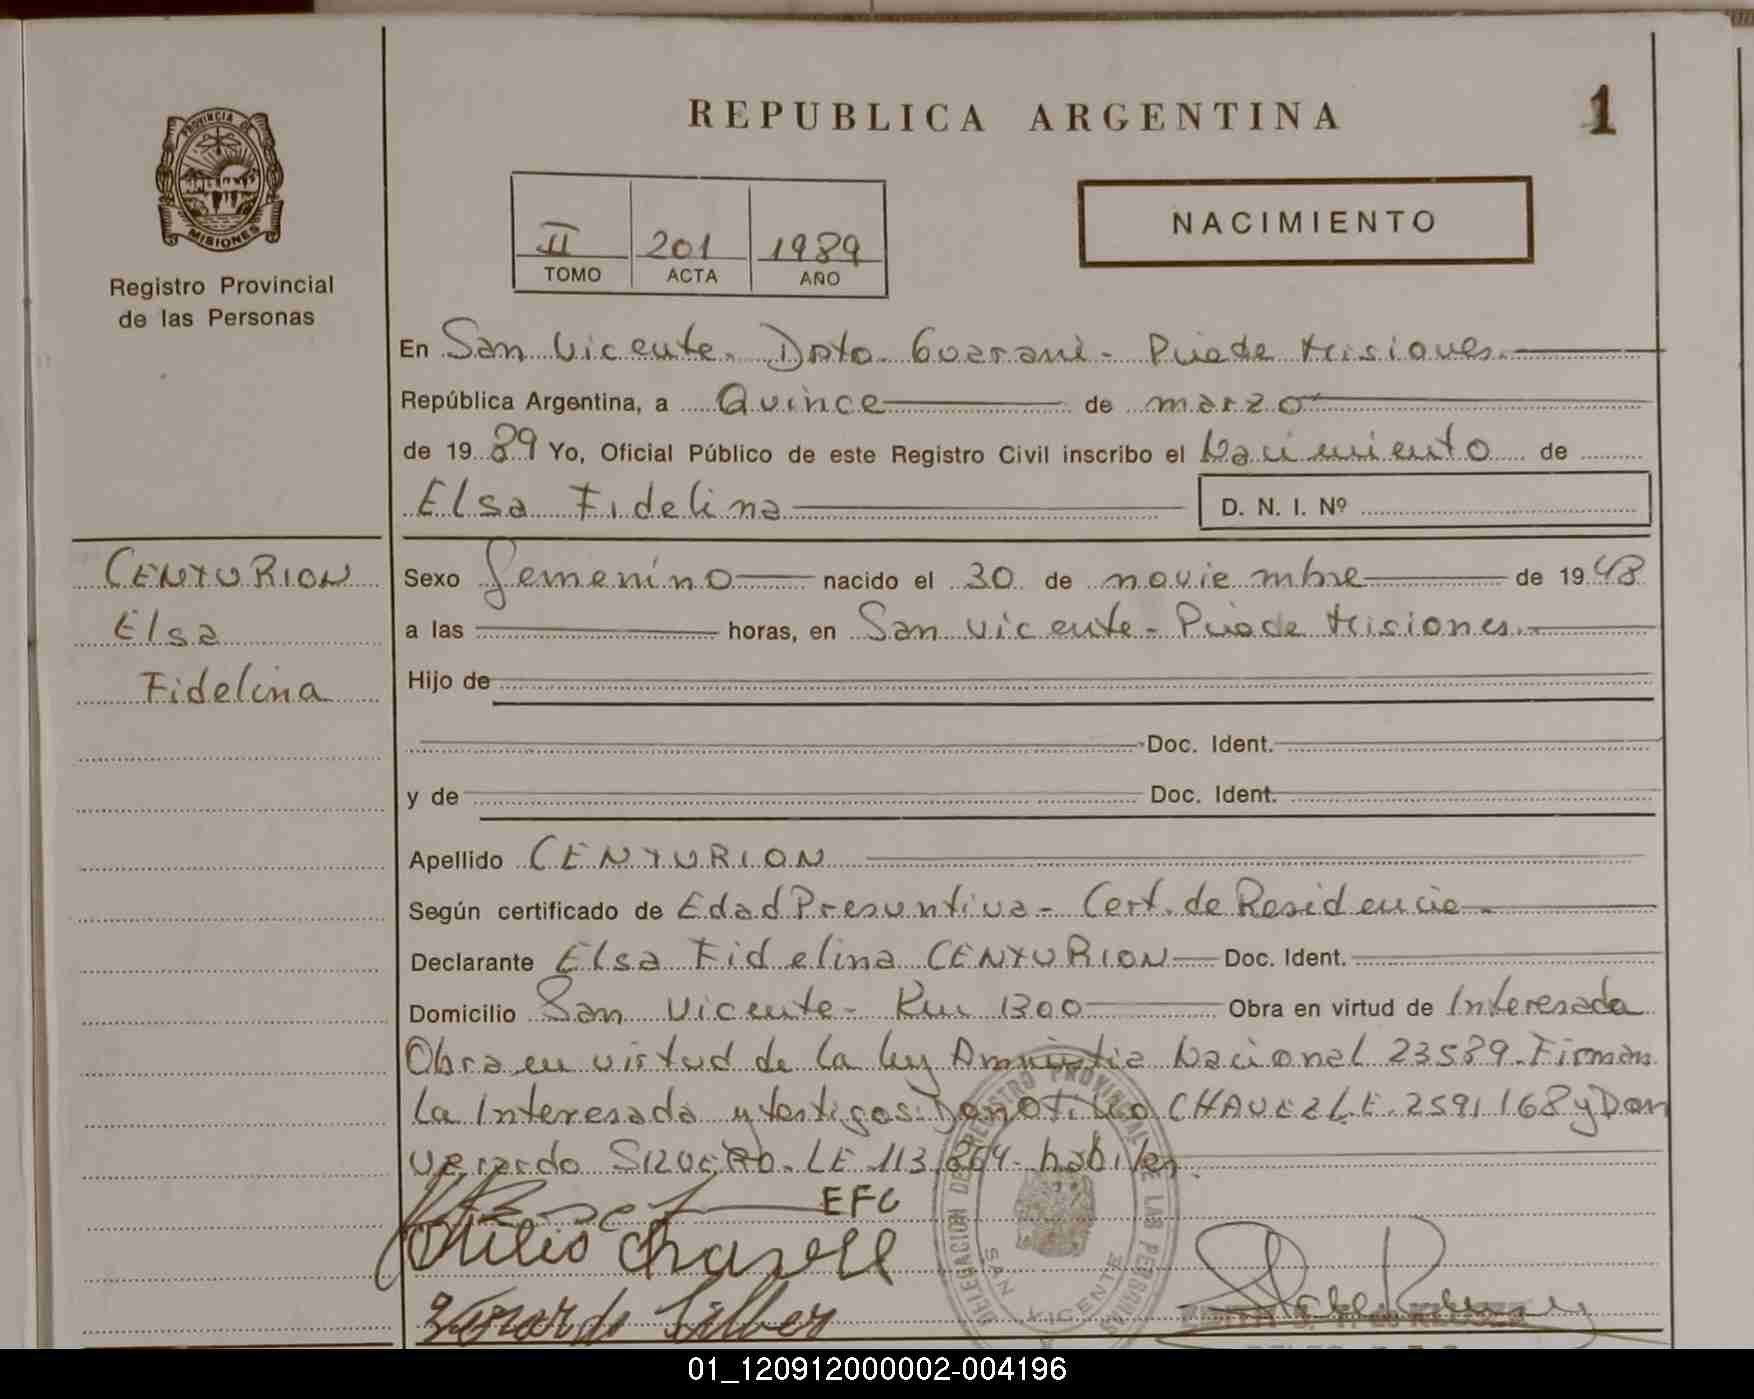 REPUBLICA ARGENTINA
1
PROVINCIA DE
MISIONES
Registro Provincial
de las Personas
II 201 1989
TOMO ACTA AÑO
NACIMIENTO
En San Vicente. Dpto. Guarani - Pciade Misiones.
República Argentina, a Quince de marzo
de 1989 Yo, Oficial Público de este Registro Civil inscribo el Nacimiento de
Elsa Fidelina D. N. I. Nº
CENTURION
Elsa
Fidelina
Sexo Femenino nacido el 30 de noviembre de 1948
a las horas, en San Vicente - Pciade Misiones.
Hijo de
Doc. Ident.
y de Doc. Ident.
Apellido CENTURION
Según certificado de Edad Presuntiva - Cert. de Residencia
Declarante Elsa Fidelina CENTURION Doc. Ident.
Domicilio San Vicente - Km 1300 Obra en virtud de Interesada
Obra en virtud de la ley Amnistia Nacional 23589. Firman
la Interesada y testigos: Don CHAVEZ L.E. 2591168 y Don
LE 113.264 - habiles.
EFC
DELEGACION DE REGISTRO PROVINCIAL DE LAS PERSONAS
SAN VICENTE
01_120912000002-004196